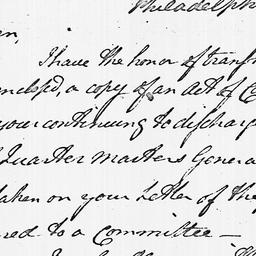 Philadelph
I have the honor of transm
enclos'd, a copy of an act of C
your continuing to discharg
Quarter Masters Genera
taken on your Letter of the
red to a Committee —